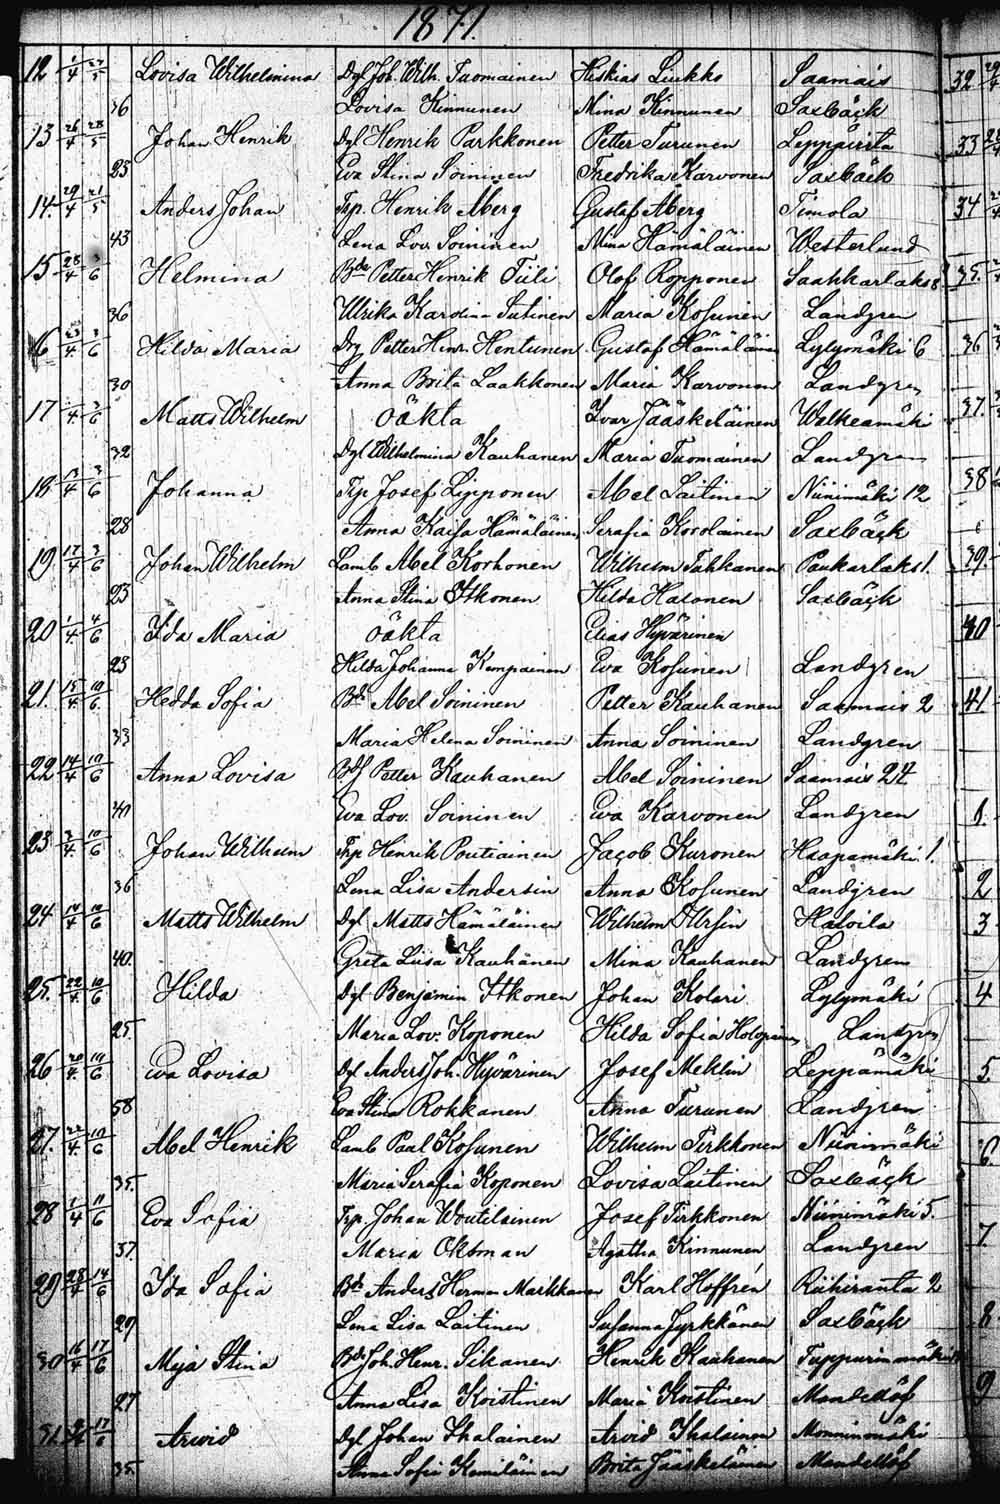 1871.
12 1/4 29/5 Lovisa Wilhelmina Dgl Joh. Wilh. Tuomainen Heskias Leukko Saamais 39
36 Lovisa Kinnunen Mina Kinnunen Saxbäck
13 26/4 28/5 Johan Henrik Dgl Henrik Parkkonen Petter Turunen Leppäsista 33
23 Eva Stina Soininen Fredrika Karvonen Saxbäck
14. 29/4 21/5 Anders Johan Tsp. Henrik Åberg Gustaf Åberg Timola 34
43 Lena Lov. Soininen Mina Hämäläinen Westerlund
15 28/4 /6 Helmina Bde Petter Henrik Tiili Olof Ropponen Saahkarlaks 8 35.
36 Ulrika Karolina Sutinen Maria Kosunen Landgren
16 23/4 3/6 Hilda Maria Drg Petter Henr. Hentunen Gustaf Hämäläinen Lylymäki 6 36
30 Anna Brita Laakkonen Maria Karvonen Landgren
17 /4 3/6 Matts Wilhelm oäkta Ivar Jääskeläinen Walkeamäki 37.
32 Dgl Wilhelmina Kauhanen Maria Tuomainen Landgren
18 13/4 3/6 Johanna Tsp Josef Lipponen Abel Laitinen Niinimäki 12 38
28 Anna Kaisa Hämäläinen Serafia Korolainen Saxbäck
19 17/4 3/6 Johan Wilhelm Lamb Abel Korhonen Wilhelm Tahkanen Paukarlaks 1. 39.
23 Anna Stina Itkonen Hilda Halonen Saxbäck
20 1/4 4/6 Ida Maria oäkta Elias Hyvärinen 40
23 Hilda Johanna Kempainen Eva Kosunen Landgren
21. 15/4 10/6 Hedda Sofia Bde Abel Soininen Petter Kauhanen Saamais 2 41.
33 Maria Helena Soininen Anna Soininen Landgren
22 14/4 10/6 Anna Lovisa Bdf Petter Kauhanen Abel Soininen Saamais 24
40 Eva Lov. Soininen Eva Karvonen Landgren 1.
23 3/4 10/6 Johan Wilhelm Tsp Henrik Poutiainen Jacob Kuronen Haapamäki 1.
36 Lena Lisa Andersin Anna Kosunen Landgren 2
24 14/4 10/6 Matts Wilhelm Dgl. Matts Hämäläinen Wilhelm Ursin Halvila 3
40. Greta Liisa Kauhanen Mina Kauhanen Landgren
25. 22/4 10/6 Hilda Dgl Benjamin Itkonen Johan Kolari Lylymäki 4
25. Maria Lov. Koponen Hilda Sofia Holopainen Landgren
26 20/4 10/6 Eva Lovisa Dgl Anders Joh. Hyvärinen Josef Meklin Leppämäki 5.
38 Eva Stina Rokkanen Anna Turunen Landgren
27. 22/4 10/6 Abel Henrik Lamb Paul Kosunen Wilhelm Tirkkonen Niinimäki 6.
35. Maria Serafia Koponen Lovisa Laitinen Saxbäck
28 1/4 11/6 Eva Sofia Tsp. Johan Woutilainen Josef Tirkkonen Niinimäki 5.
37. Maria Oksman Agatha Kinnunen Landgren 7.
29 28/4 14/6 Ida Sofia Bde Anders Herman Markkanen Karl Hoffrén Riihiranta 2
29 Lena Lisa Laitinen Susanna Jyrkkänen Saxbäck 8
30 16/4 17/6 Maja Stina Bde Joh. Henr. Sikanen Henrik Kauhanen Tuppurinmäki
27 Anna Lisa Koistinen Maria Koistinen Mandellöf 9
31. 17/6 Arvid Dgl Johan Ihalainen Arvid Ihalainen Monninmäki
35. Anna Sofia Komiläinen Brita Jääskeläinen Mandellöf